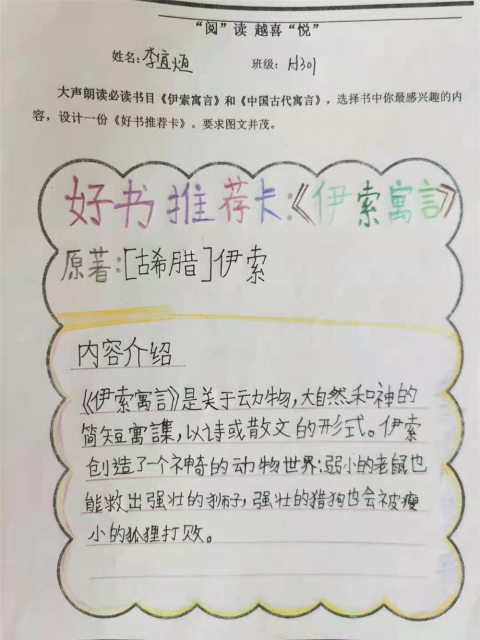 “阅”读 越喜“悦”
姓名:李宜烜 班级:A301
大声朗读必读书目《伊索寓言》和《中国古代寓言》,选择书中你最感兴趣的内
容,设计一份《好书推荐卡》。要求图文并茂。
好书推荐卡:《伊索寓言》
原著:[古希腊]伊索
内容介绍
《伊索寓言》是关于动物,大自然和神的
简短寓言集,以诗或散文的形式。伊索
创造了一个神奇的动物世界:弱小的老鼠也
能救出强壮的狮子,强壮的猎狗也会被瘦
小的狐狸打败。